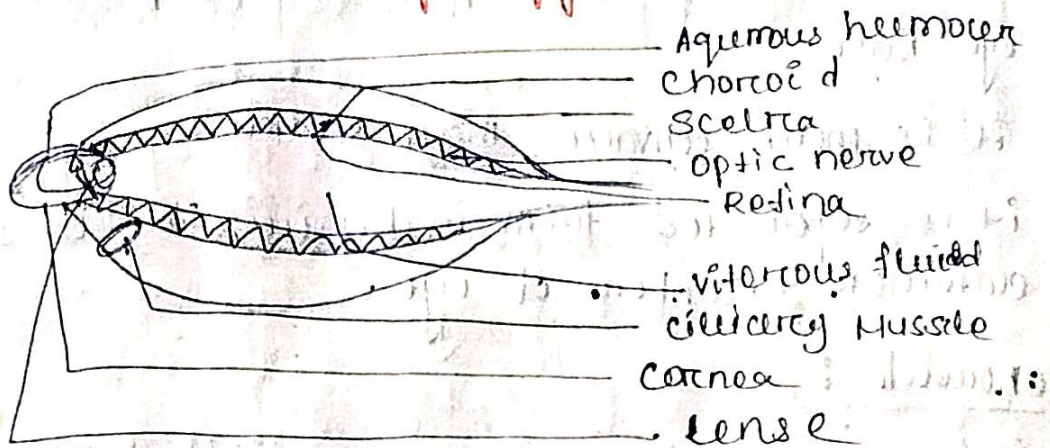 Aquemous heemocer
Chorcoid
Scelrca
Optic nerve
Retina
Vitorcous fluied
Cilliercy Mussele
Corcnea
lense